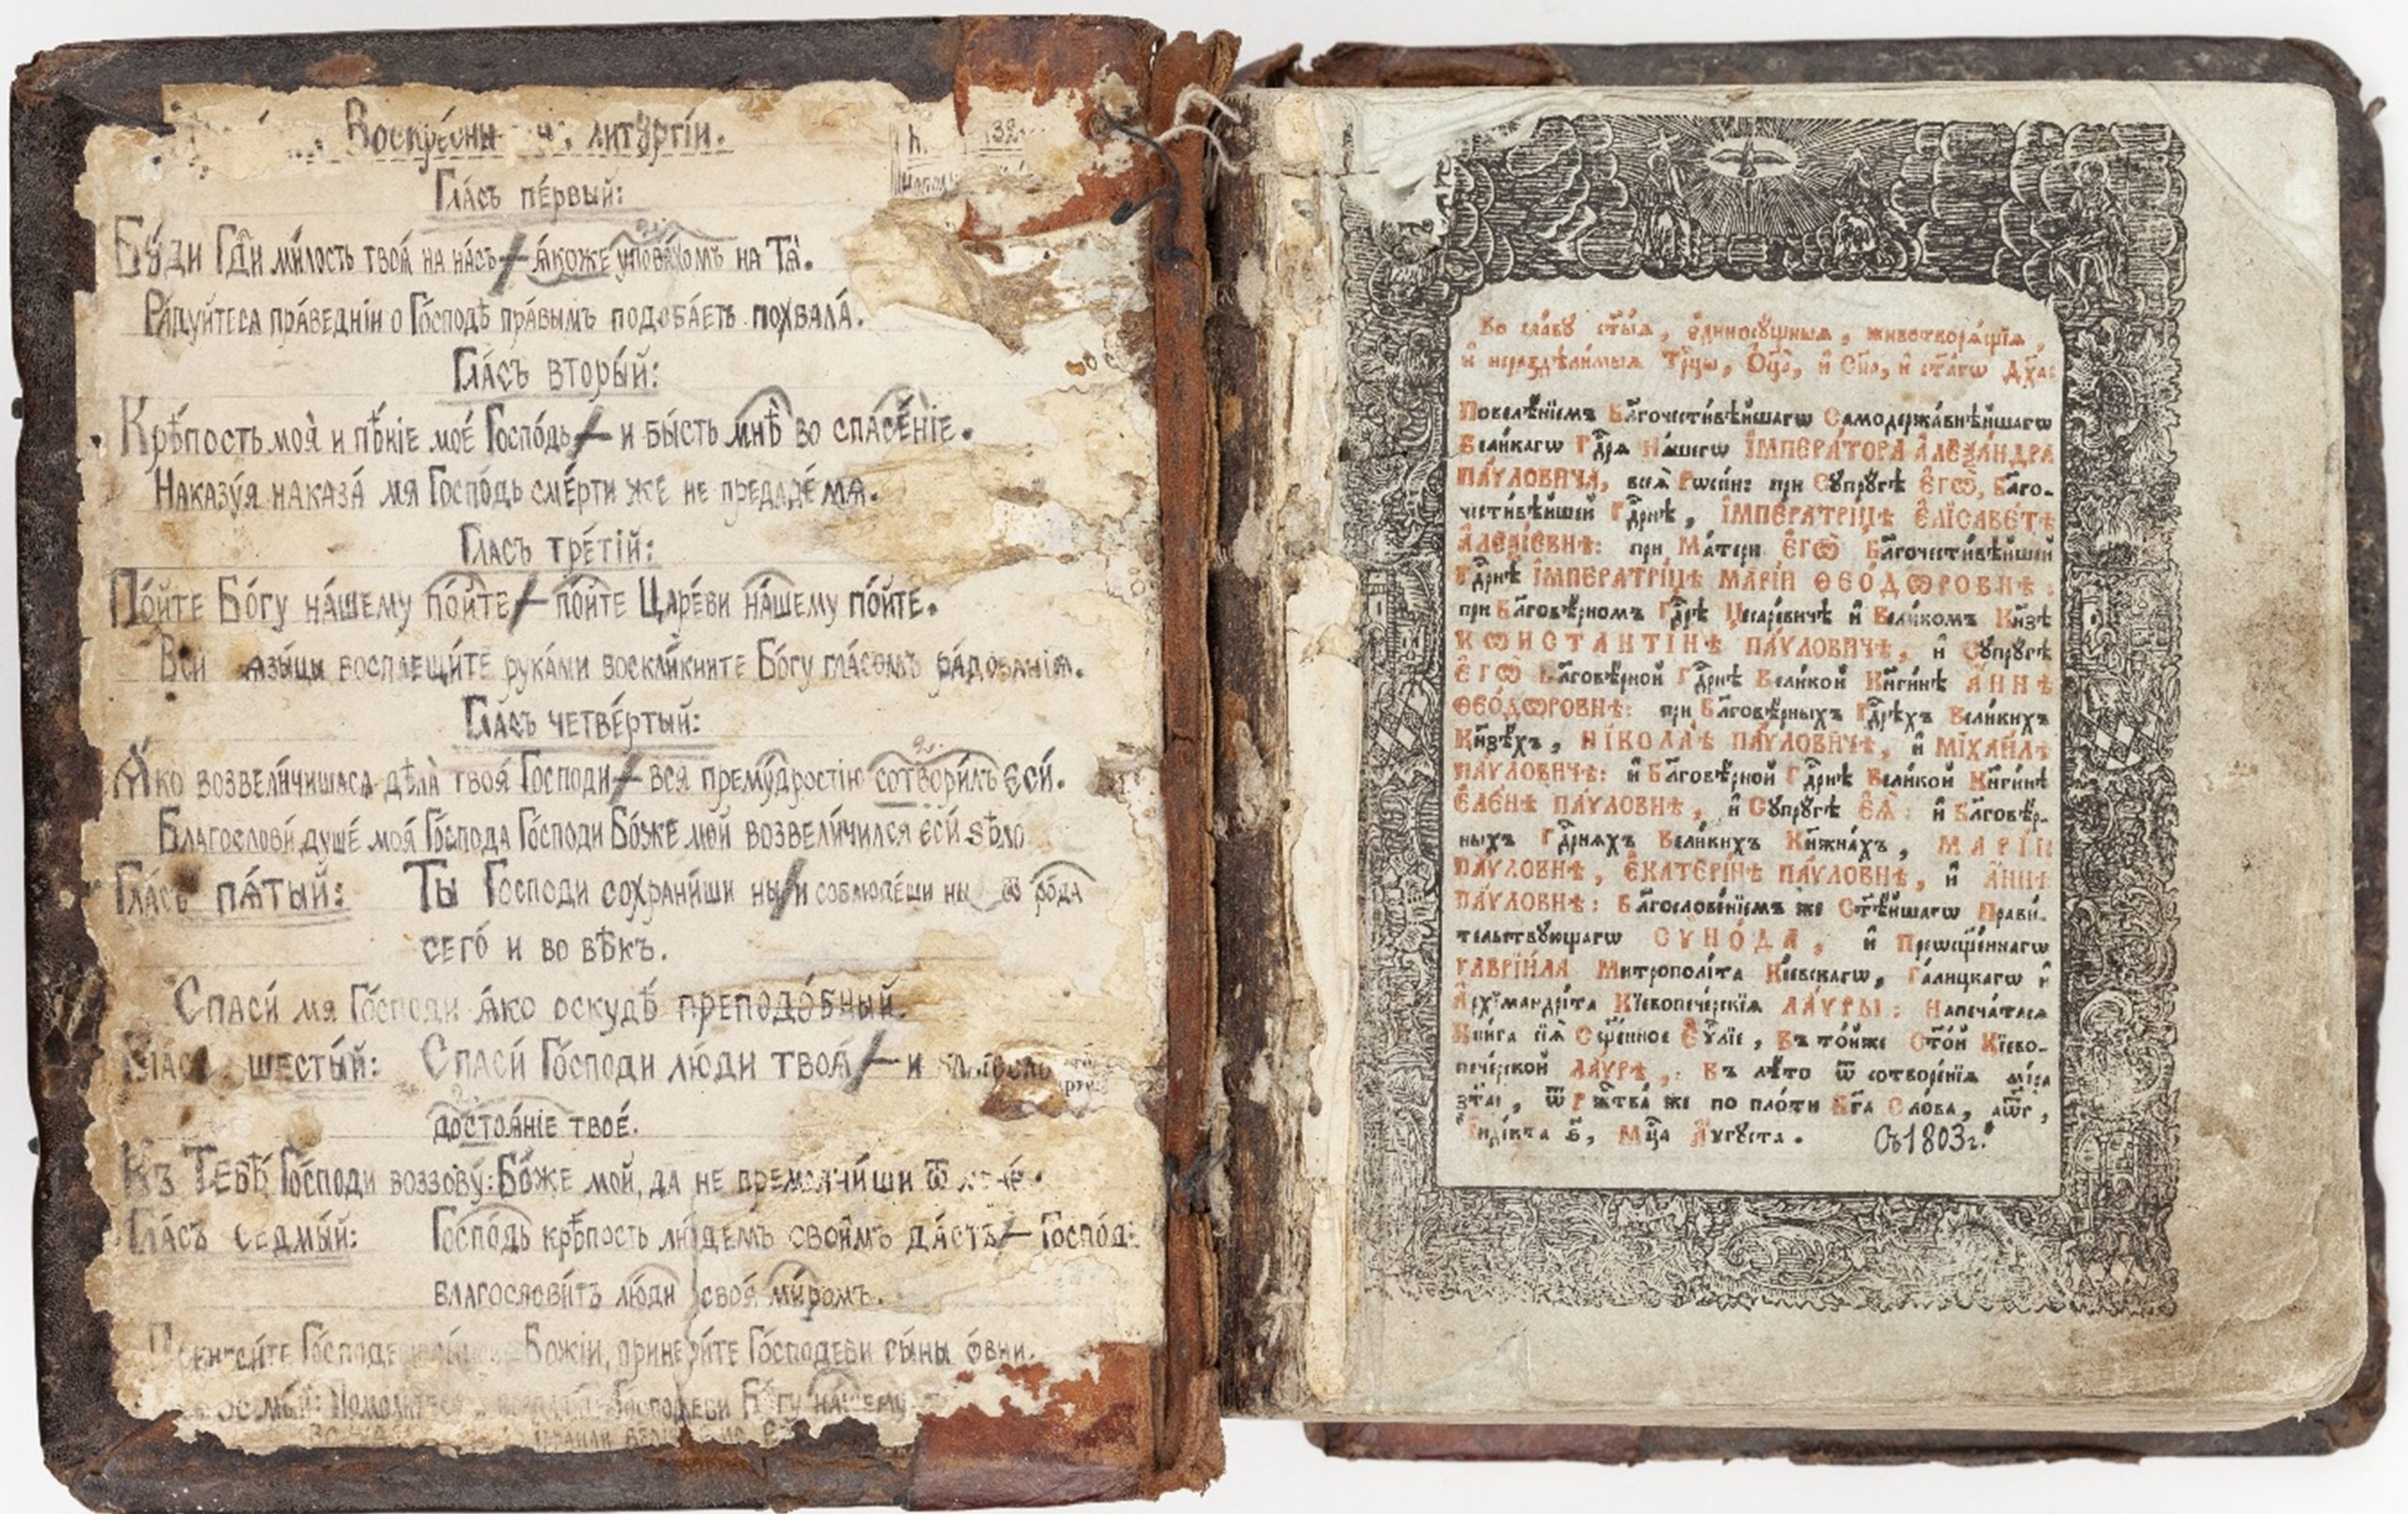 Воскресны литꙋргіи.
Гла́съ пе́рвый:
Бꙋ́ди Гдⷭ҇и ми́лость твоѧ́ на на́съ ѧ́коже упова́хомъ на Тѧ̀.
Ра́дуйтесѧ пра́веднїи о Го́сподѣ пра́вымъ подоба́етъ похвала́.
Гла́съ вторы́й:
Крѣ́пость моѧ̀ и пѣ́ніе мое́ Госпо́дь и бы́сть мнѣ̀ во спасе́ніе.
Наказу́я наказа́ мя Госпо́дь сме́рти же не предаде́ мѧ.
Гласъ тре́тій:
По́йте Бо́гу на́шему по́йте по́йте Царе́ви на́шему по́йте.
Вси ѧзы́цы восплещи́те рука́ми воскли́кните Бо́гу гла́сомъ ра́дованіѧ.
Гла́съ четве́ртый:
Ѧ́ко возвели́чишасѧ дѣла̀ твоѧ́ Го́споди вся прему́дростію сотвори́лъ єси́.
Благослови́ душе́ моѧ́ Го́спода Го́споди Бо́же мой возвели́чился єси́ ѕѣло
Гла́съ пѧ́тый: Ты Го́споди сохрани́ши ны и соблюде́ши ны ѿ ро́да
сего́ и во вѣ́къ.
Спаси́ мя Го́споди ѧ́ко оскудѣ́ преподо́бный.
Гласъ шесты́й: Спаси́ Го́споди лю́ди твоѧ́ и
достоѧ́ніе твое́.
Къ Тебѣ́ Го́споди воззову́: Бо́же мой, да не премолчи́ши ѿ
Гла́съ седмы́й: Госпо́дь крѣ́пость лю́демъ свои́мъ да́стъ Госпо́д
благослови́тъ лю́ди своѧ́ ми́ромъ.
Бо́жіи, принеси́те Го́сподеви сы́ны о́вни.
Го́сподеви Бо́гу на́шему
Во сла́вꙋ ст҃ы́ѧ, є҆диносꙋ́щныѧ, животворѧ́щїѧ,
и҆ нераздѣ́лимыѧ Трⷪ҇цы, Ѻ҆ц҃а̀, и҆ Сн҃а, и҆ ст҃а́гѡ Дх҃а:
Повелѣ́нїемъ Бл҃гочести́вѣйшагѡ Самодержа́внѣйшагѡ
Вели́кагѡ Гдⷭ҇рѧ На́шегѡ І҆МПЕРА́ТОРА А҆ЛЕѮА́НДРА
ПА́ѴЛОВИЧА, всеѧ̀ Рѡссі́и: при Сꙋпрꙋ́гѣ Є҆ГѠ̀, Бл҃го-
чести́вѣйшей Гдⷭ҇рнѣ, І҆МПЕРАТРІ́ЦѢ Є҆ЛІСАВЕ́ТѢ
А҆ЛЕѮІ́ЕВНѢ: при Ма́тери Є҆ГѠ̀ Бл҃гочести́вѣйшей
Гдⷭ҇рнѣ І҆МПЕРАТРІ́ЦѢ МАРІ́И ѲЕО́ДѠРОВНѢ:
при Бл҃говѣ́рномъ Гдⷭ҇рѣ Цесаре́вичѣ и҆ Вели́комъ Кн҃зѣ
КѠНСТАНТІ́НѢ ПА́ѴЛОВИЧѢ, и҆ Сꙋпрꙋ́гѣ
Є҆ГѠ̀ Бл҃говѣ́рной Гдⷭ҇рнѣ Вели́кой Кн҃ги́нѣ А́ННѢ
ѲЕО́ДѠРОВНѢ: при Бл҃говѣ́рныхъ Гдⷭ҇рѣхъ Вели́кихъ
Кн҃зѣ́хъ, НІКОЛА́Ѣ ПА́ѴЛОВИЧѢ, и҆ МІХАИ́ЛѢ
ПА́ѴЛОВИЧѢ: и҆ Бл҃говѣ́рной Гдⷭ҇рнѣ Вели́кой Кн҃ги́нѣ
Є҆ЛЕ́НѢ ПА́ѴЛОВНѢ, и҆ Сꙋпрꙋ́гѣ Є҆Ѧ̀: и҆ Бл҃говѣ́р-
ныхъ Гдⷭ҇рнѧхъ Вели́кихъ Кн҃жна́хъ, МАРІ́И
ПА́ѴЛОВНѢ, Є҆КАТЕРІ́НѢ ПА́ѴЛОВНѢ, и҆ А́ННѢ
ПА́ѴЛОВНѢ: Бл҃гослове́нїемъ же Ст҃ѣ́йшагѡ Прави́-
тельствꙋющагѡ СѴНО́ДА, и҆ Преѡсщ҃е́ннагѡ
ГАВРІИ́ЛА Митрополі́та Кі́евскагѡ, Га́лицкагѡ и҆
А҆рхїмандрі́та Кїевопече́рскїѧ ЛА́ѴРЫ: Напеча́тасѧ
Кни́га сїѧ̀ Сщ҃е́нное Є҆ѵⷢ҇лїе, въ то́йже Ст҃о́й Кїево-
пече́рской ЛА́ѴРѢ,: въ лѣ́то ѿ сотворе́нїѧ мі́ра
ѿ Ржⷭ҇тва́ же по пло́ти Бг҃а Сло́ва, аѿг,
І҆нді́кта ѕ҃, Мцⷭ҇а А҆́ѵгꙋста. Съ 1803 г.